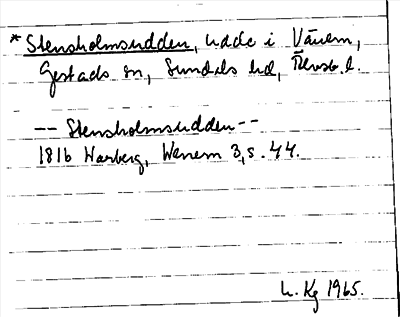 * Stensholmsudden, udde i Vänern,
Gestads sn, Sundals hd, Älvsb. l.
-- Stensholmsudden --
1816 Warberg, Wenern 3, s. 44.
L. Kg 1965.